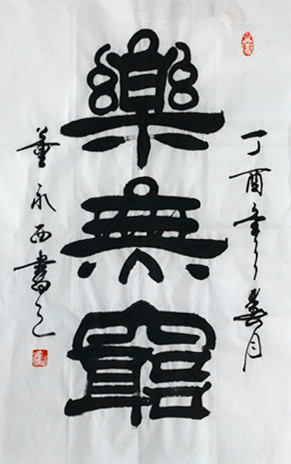 丁酉年之春月
樂無窮
董永西書之